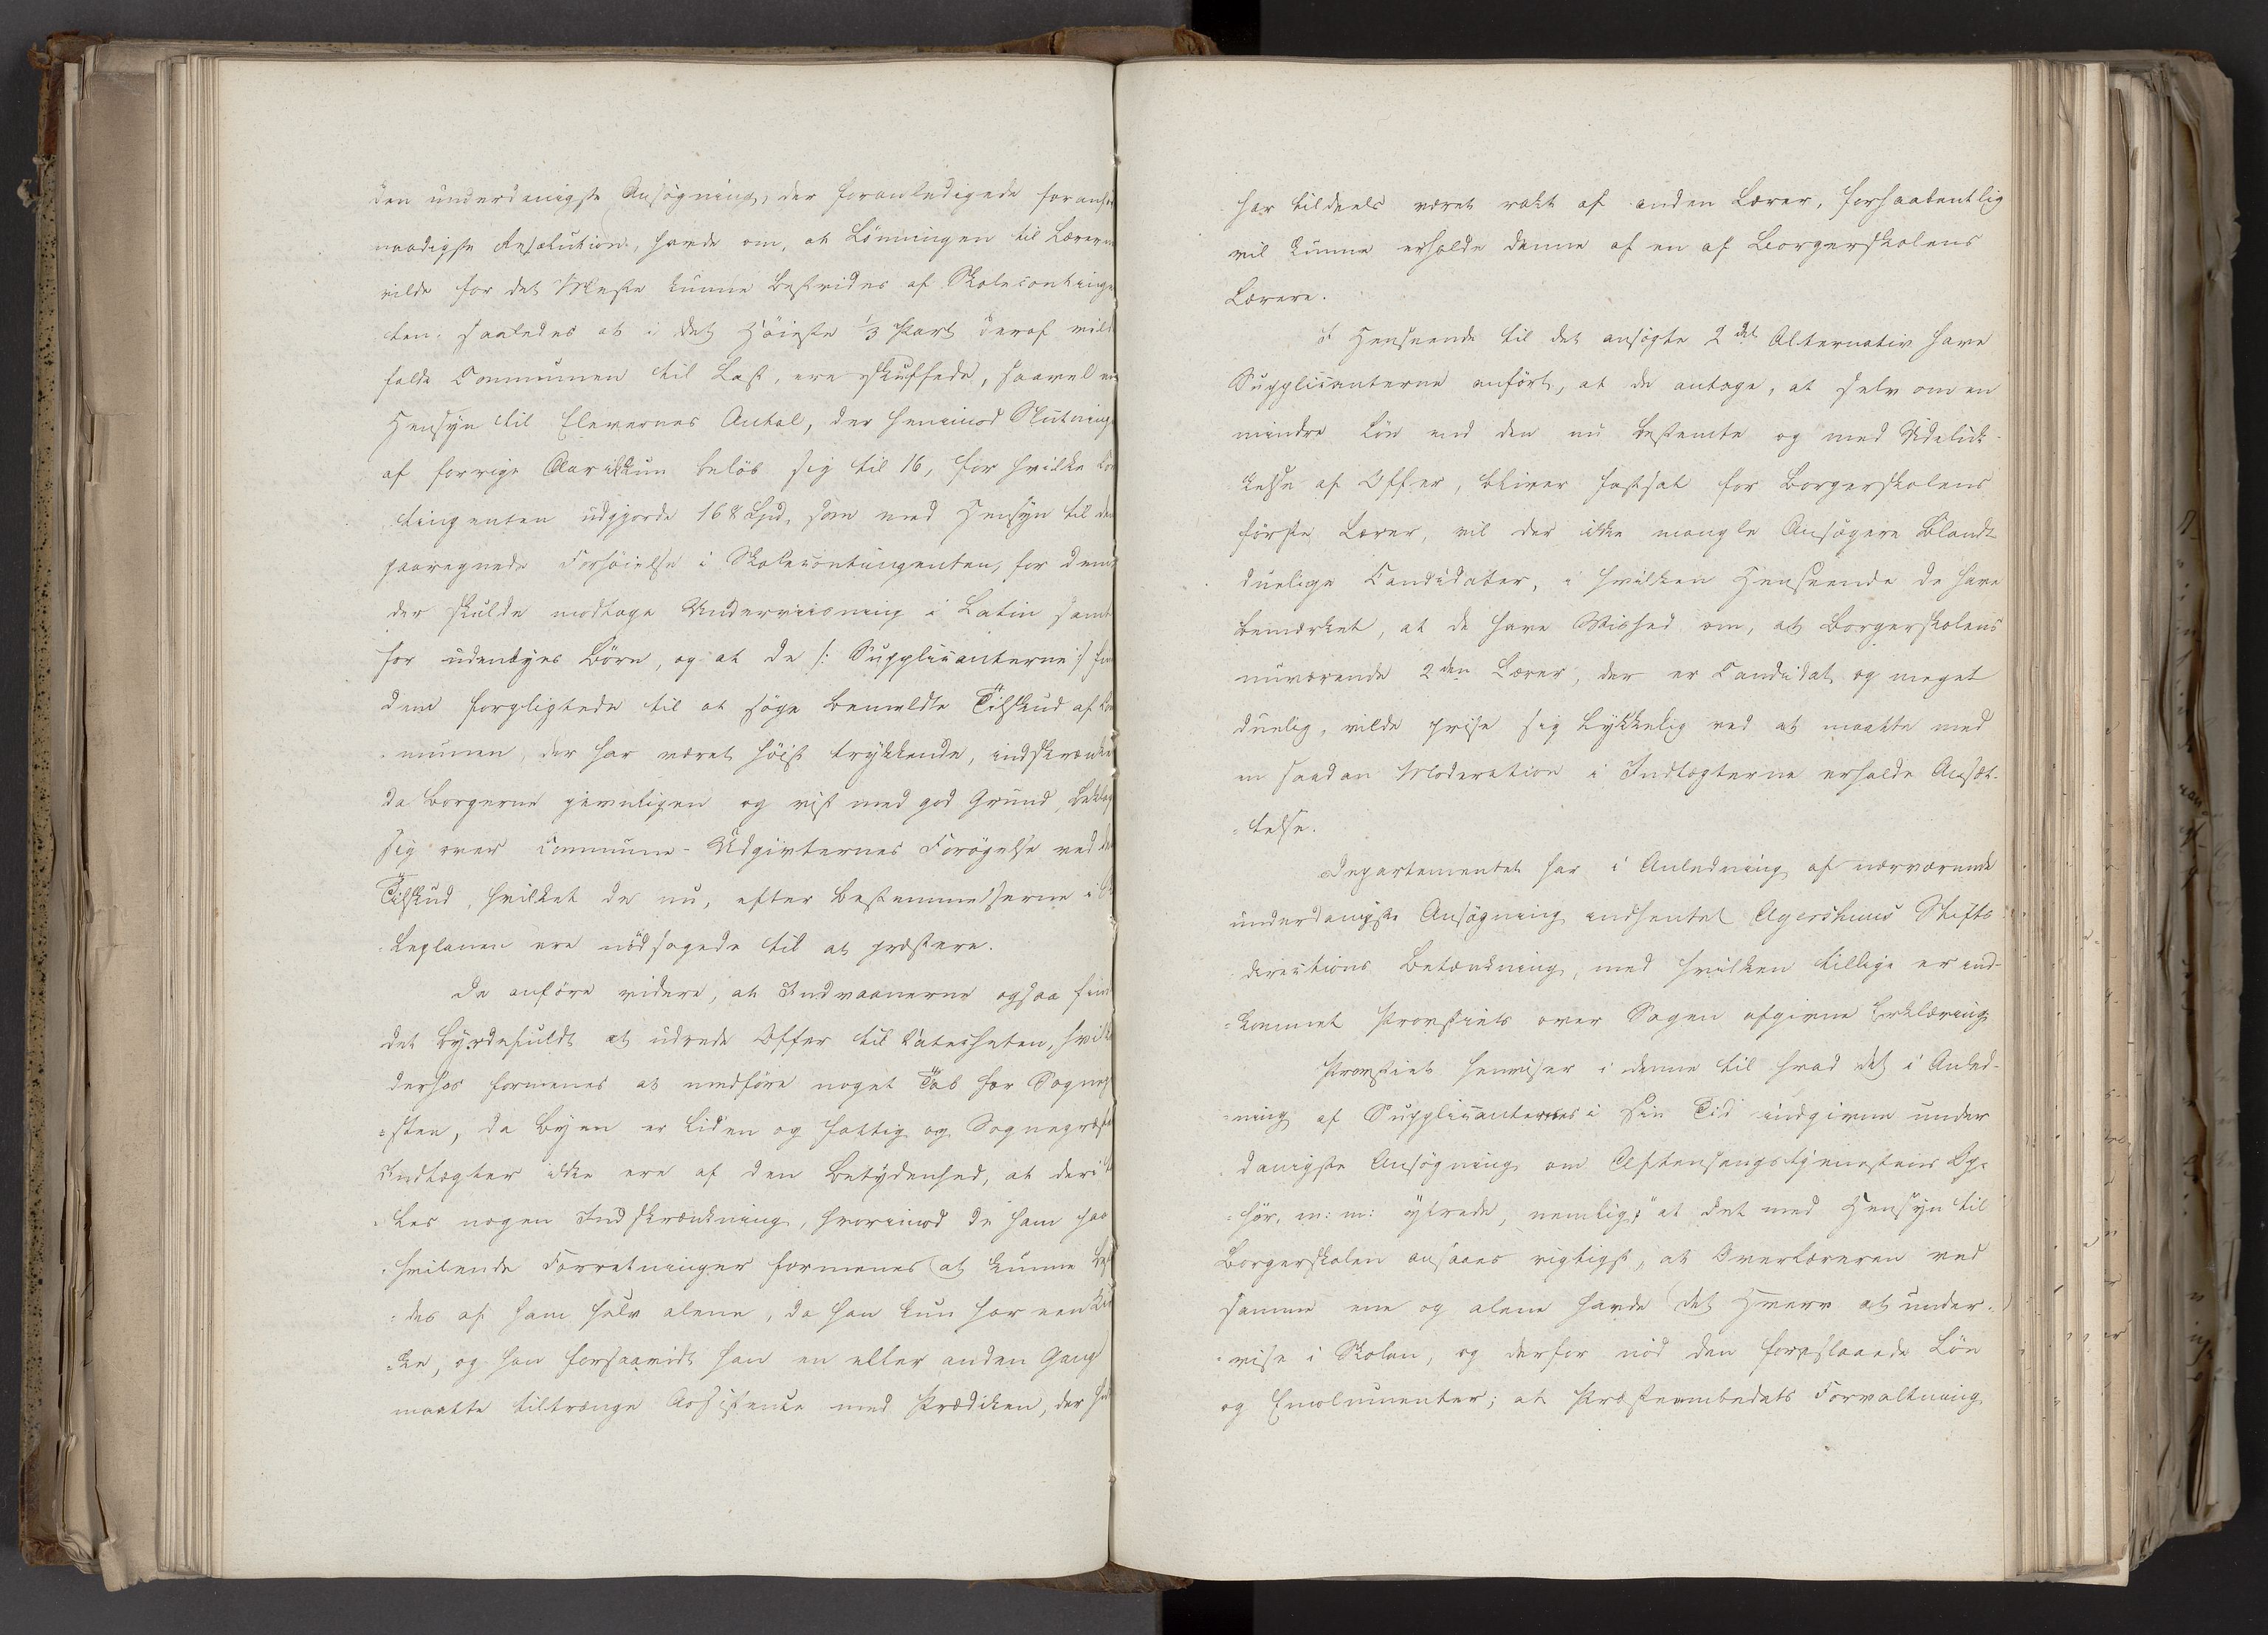 den underdanigste Ansøgning, der foranledigede
naadigste Resolution, havde om, at Lønningen til
vilde for det Meste kunne bestrides af Skolecontinge
ten, saaledes at i det Høieste 1/3 Part deraf vilde
falde Communen til Last, ere skuffede, saavel
Hensyn til Elevernes Antal, der henimod Slutning
af forrige Aar ikkun beløb sig til 16, for hvilke
tingenten udgjorde 168 Spd, som med Hensyn til den
paaregnede Forhøielse i Skolecontingenten, for dem
der skulde modtage Underviisning i Latin samt
for udenbyes Børn, og at de /: Supplicanterne :/
dem forpligtede til at søge bemeldte Tilskud af
munen, der har været høist trykkende, indskrænket
da Borgerne jevnligen og vist med god Grund,
sig over Commune-Udgivternes Forøgelse ved
Tilskud, hvilket de nu, efter Bestemmelserne i
leplanen ere nødsagede til at præstere.
De anføre videre, at Indvaanerne ogsaa
det byrdefuldt at udrede Offer til Catecheten,
derhos formenes at medføre noget Tab for
=sten, da Byen er liden og fattig og
Indtægter ikke ere af den Betydenhed, at
=les nogen Indskrænkning, hvorimod de ham paa
=hvilende Forretninger formenes at kunne
=des af ham selv alene, da han kun har een
ke, og han forsaavidt han en eller anden Gang
maatte tiltrænge Assistence med Prædiken, der
har tildeels været rakt af anden Lærer, forhaabentlig
vil kunne erholde denne af en af Borgerskolens
Lærere.
I Henseende til det ansøgte 2det Alternativ have
Supplicanterne anført, at de antage, at selv om en
mindre Løn end den nu bestemte og med Udeluk-
kelse af Offer, bliver fastsat for Borgerskolens
første Lærer, vil der ikke mangle Ansøgere blandt
duelige Candidater, i hvilken Henseende de have
bemærket, at de have Vished om, at Borgerskolens
nuværende 2den Lærer, der er Candidat og meget
duelig, vilde prise sig lykkelig ved at maatte med
en saadan Moderation i Indtægterne erholde Ansæt-
=telse.
Departementet har i Anledning af nærværende
underdanigste Ansøgning indhentet Agershuus Stifts
directions Betænkning, med hvilken tillige er ind-
=kommet Provstiets over Sagen afgivne Erklæring
Provstiet henviser i denne til hvad det i Anled-
=ning af Supplicanternes i sin Tid indgivne under
danigste Ansøgning om Aftensangstjenestens Op=
=hør, m: m: yttrede, nemlig: "at det med Hensyn til
Borgerskolen ansaaes rigtigst, at Overlæreren ved
samme ene og alene havde det Hverv at under=
=vise i Skolen, og derfor nød den foreslaaede Løn
og Emolumenter; at Præsteembedets Forvaltning